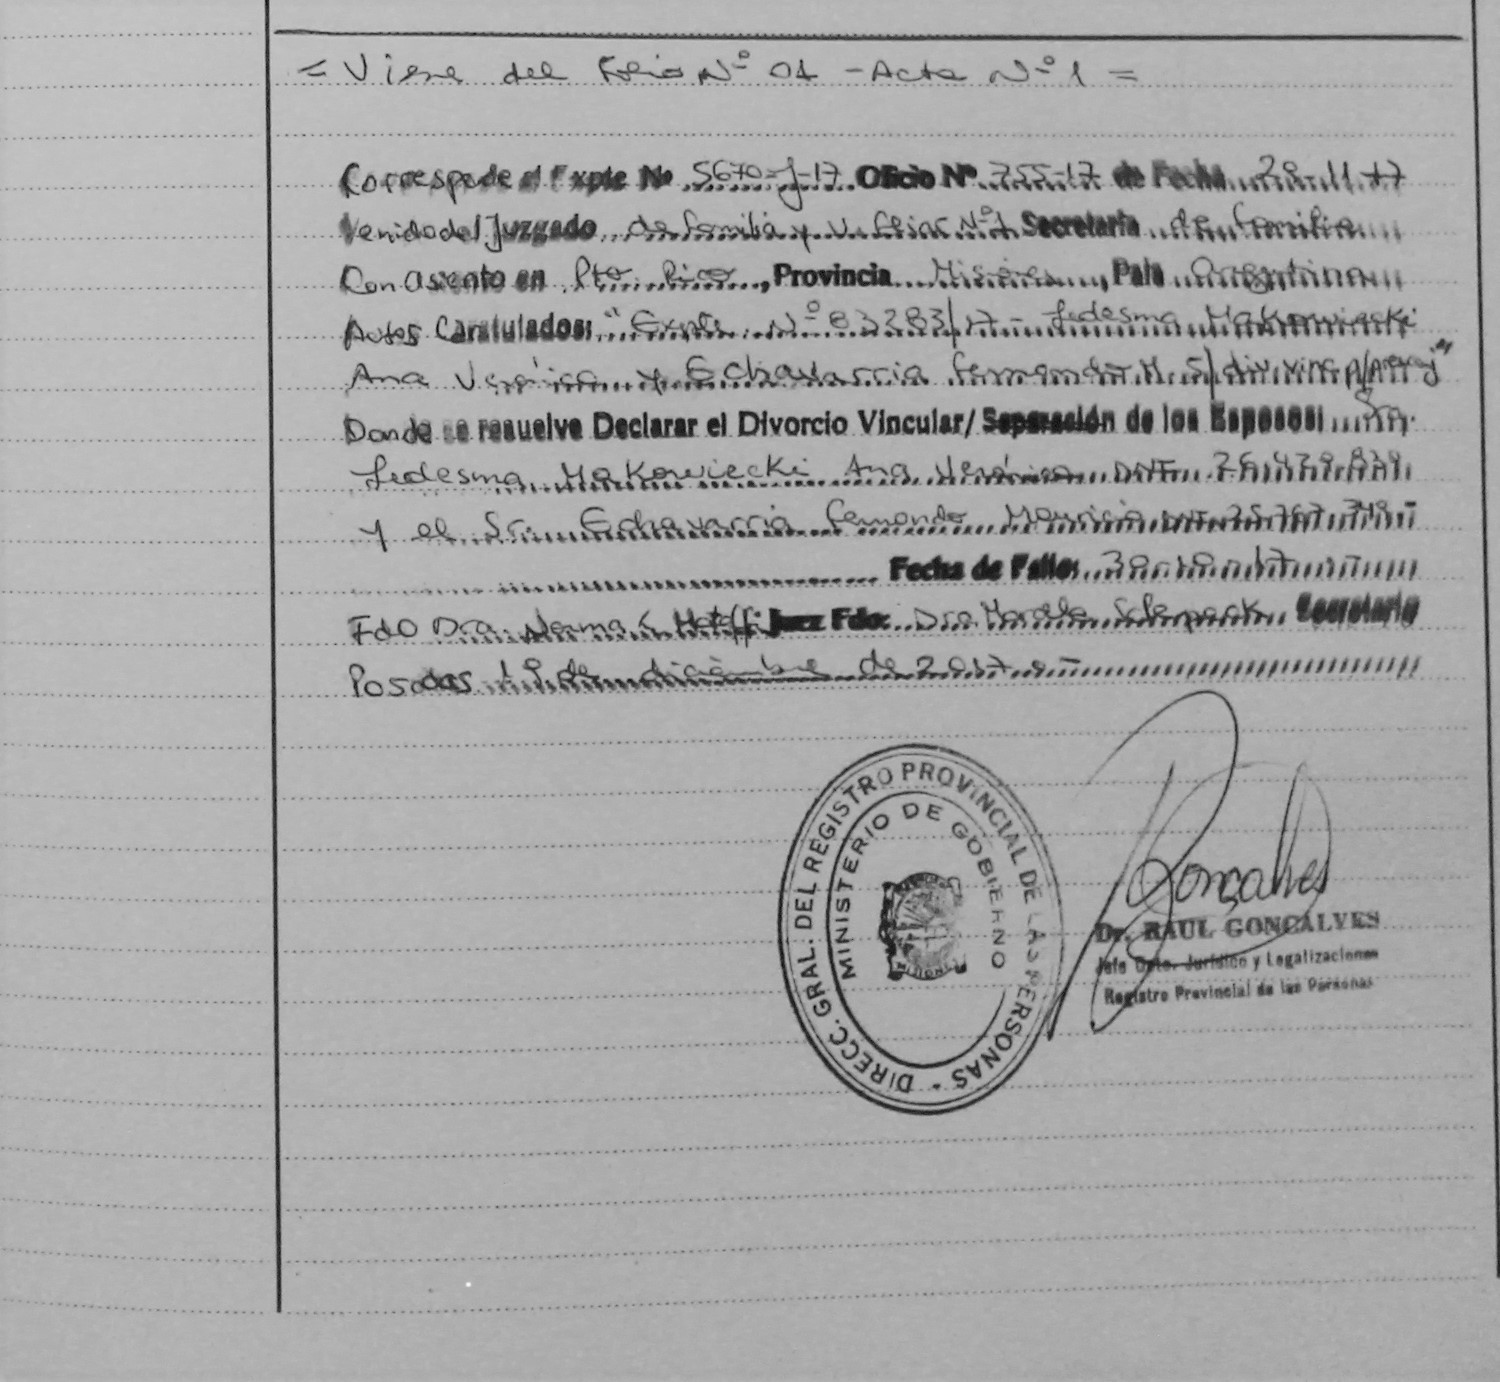 = Viene del Folio Nº 01 - Acta Nº 1 =
Corresponde al Expte Nº 5670-J-17 Oficio Nº 755-17 de Fecha 28-11-17
Venido del Juzgado de familia y Nº 1 Secretaria de familia
Con asiento en Pto. Rico, Provincia Misiones, Pais Argentina
Autos Caratulados: "Expte Nº 83283/17 - Ledesma Makowiecki
Ana Verónica y Echavarria Fernando M. S/
Donde se resuelve Declarar el Divorcio Vincular/ Separación de los Esposos: Sra.
Ledesma Makowiecki Ana Verónica DNI
y el Sr. Echavarria Fernando Mauricio DNI
Fecha de Fallo:
Fdo Dra. Norma Juez Fdo: Dra. Secretaria
Posadas 1º de diciembre de 2017
DIRECC. GRAL. DEL REGISTRO PROVINCIAL DE LAS PERSONAS
MINISTERIO DE GOBIERNO
Gonçalves
Dr. RAUL GONCALVES
Jefe Dpto. Jurídico y Legalizaciones
Registro Provincial de las Personas